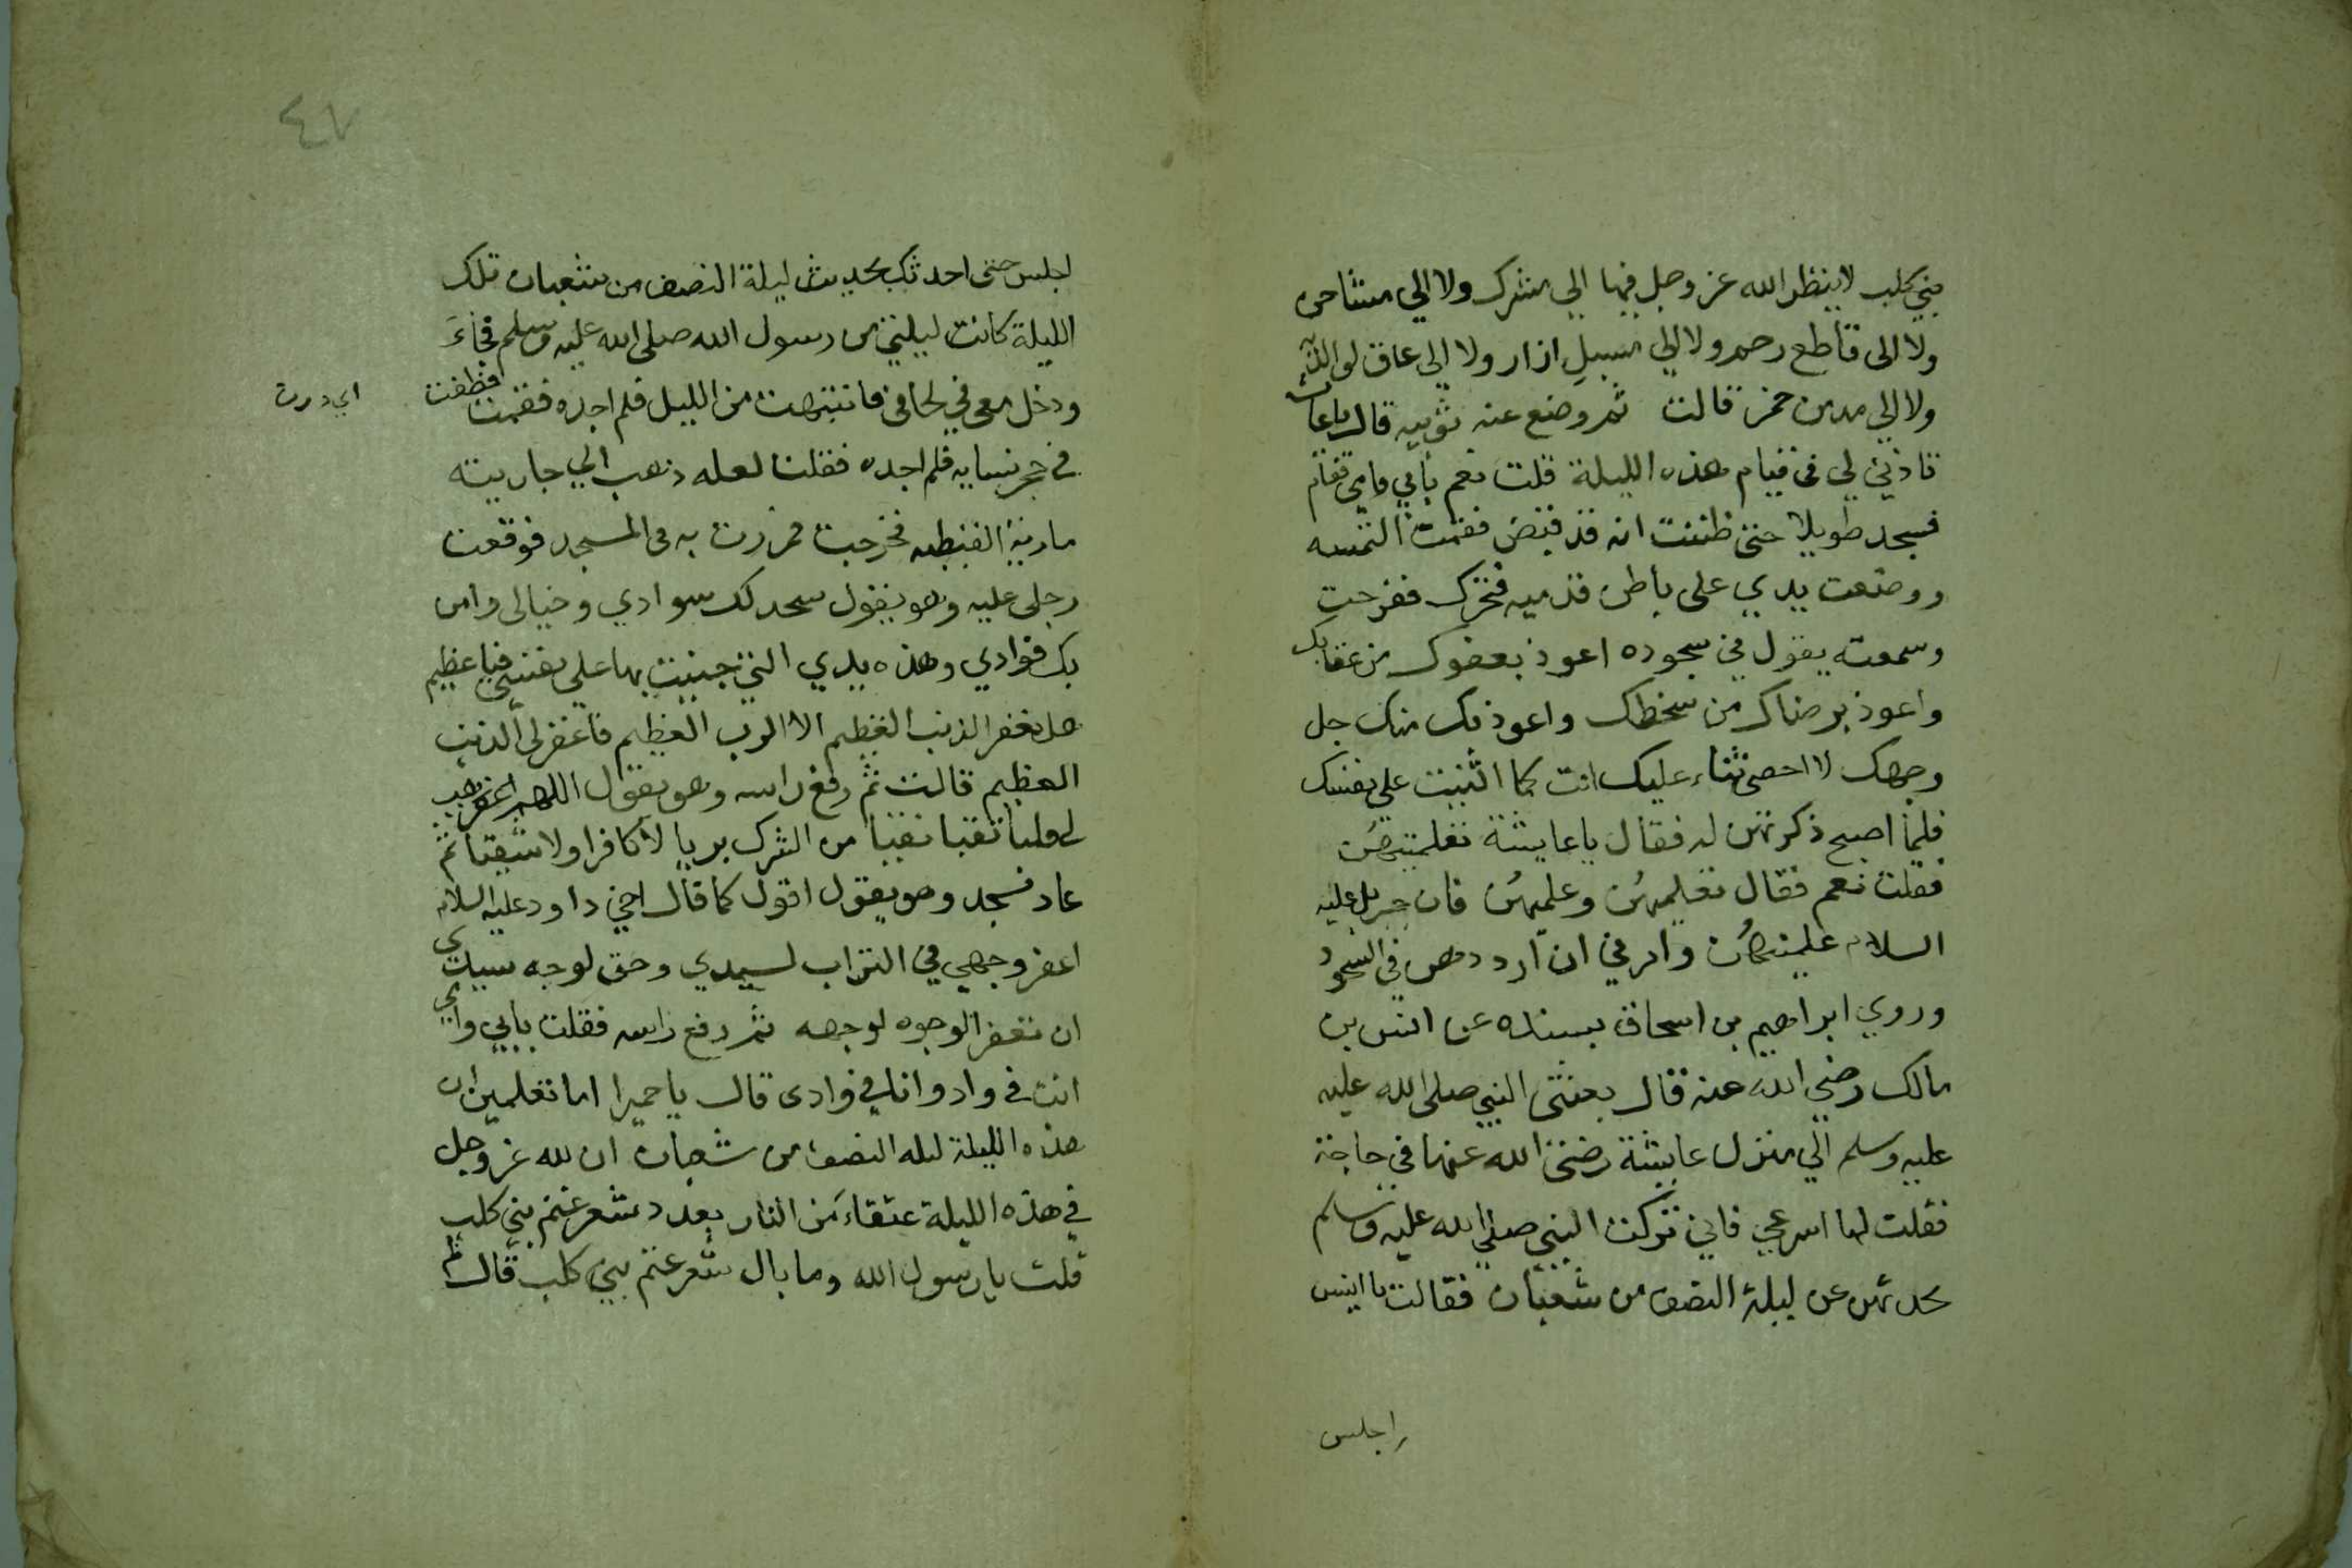 بني كلب لا ينظر الله عز وجل فيها الى مشرك ولا الي مشاحن
ولا الى قاطع رحم ولا الي مسبل ازار ولا الى عاق لوالديه
ولا الي مدمن خمر قالت ثم وضع عنه ثوبيه قال يا عائشة
تاذني لي في قيام هذه الليلة قلت نعم بابي وامي فقام
فسجد طويلا حتى ظننت انه قد قبض فقمت التمسه
ووضعت يدي على باطن قدميه فتحرك ففرحت
وسمعته يقول في سجوده اعوذ بعفوك من عقابك
واعوذ برضاك من سخطك واعوذ بك منك جل
وجهك لا احصي ثناء عليك انت كما اثنيت على نفسك
فلما اصبح ذكرتهن له فقال يا عايشة تعلمتيهن
فقلت نعم فقال تعلميهن وعلميهن فان جبريل عليه
السلام علمنيهن وامرني ان ارددهن في السجود
وروي ابراهيم بن اسحاق بسنده عن انس بن
مالك رضي الله عنه قال بعثني النبي صلى الله عليه
عليه وسلم الي منزل عايشة رضي الله عنها في حاجة
فقلت لها اسرعي فاني تركت النبي صلى الله عليه وسلم
يحدثهن عن ليلة النصف من شعبان فقالت يا انيس
اجلس
٤٧
اجلس حتى احدثك بحديث ليلة النصف من شعبان تلك
الليلة كانت ليلتي من رسول الله صلى الله عليه وسلم فجاء
ودخل معي في لحافي فانتبهت من الليل فلم اجده فقمت فطفت
اي درت
في حجر نسايه فلم اجده فقلت لعله ذهب الي جاريته
مارية القبطيه فخرجت فمررت به في المسجد فوقعت
رجلي عليه وهو يقول سجد لك سوادي وخيالى وامن
بك فوادي وهذه يدي التي جنيت بها علي نفسي فيا عظيم
هل يغفر الذنب العظيم الا الرب العظيم فاغفر لى الذنب
العظيم قالت ثم رفع راسه وهو يقول اللهم هب
لي قلبا تقيا نقيا من الشرك بريا لا كافرا ولا شقيا ثم
عاد فسجد وهو يقول اقول كما قال اخي داود عليه السلام
اعفر وجهي في التراب لسيدي وحق لوجه سيدي
ان تعفر الوجوه لوجهه ثم رفع راسه فقلت بابي وامي
انت في واد وانا في وادى قال يا حميرا اما تعلمين ان
هذه الليلة ليله النصف من شعبان ان لله عز وجل
في هذه الليلة عتقاء من النار بعدد شعر غنم بني كلب
قلت يا رسول الله وما بال شعر غنم بني كلب قال